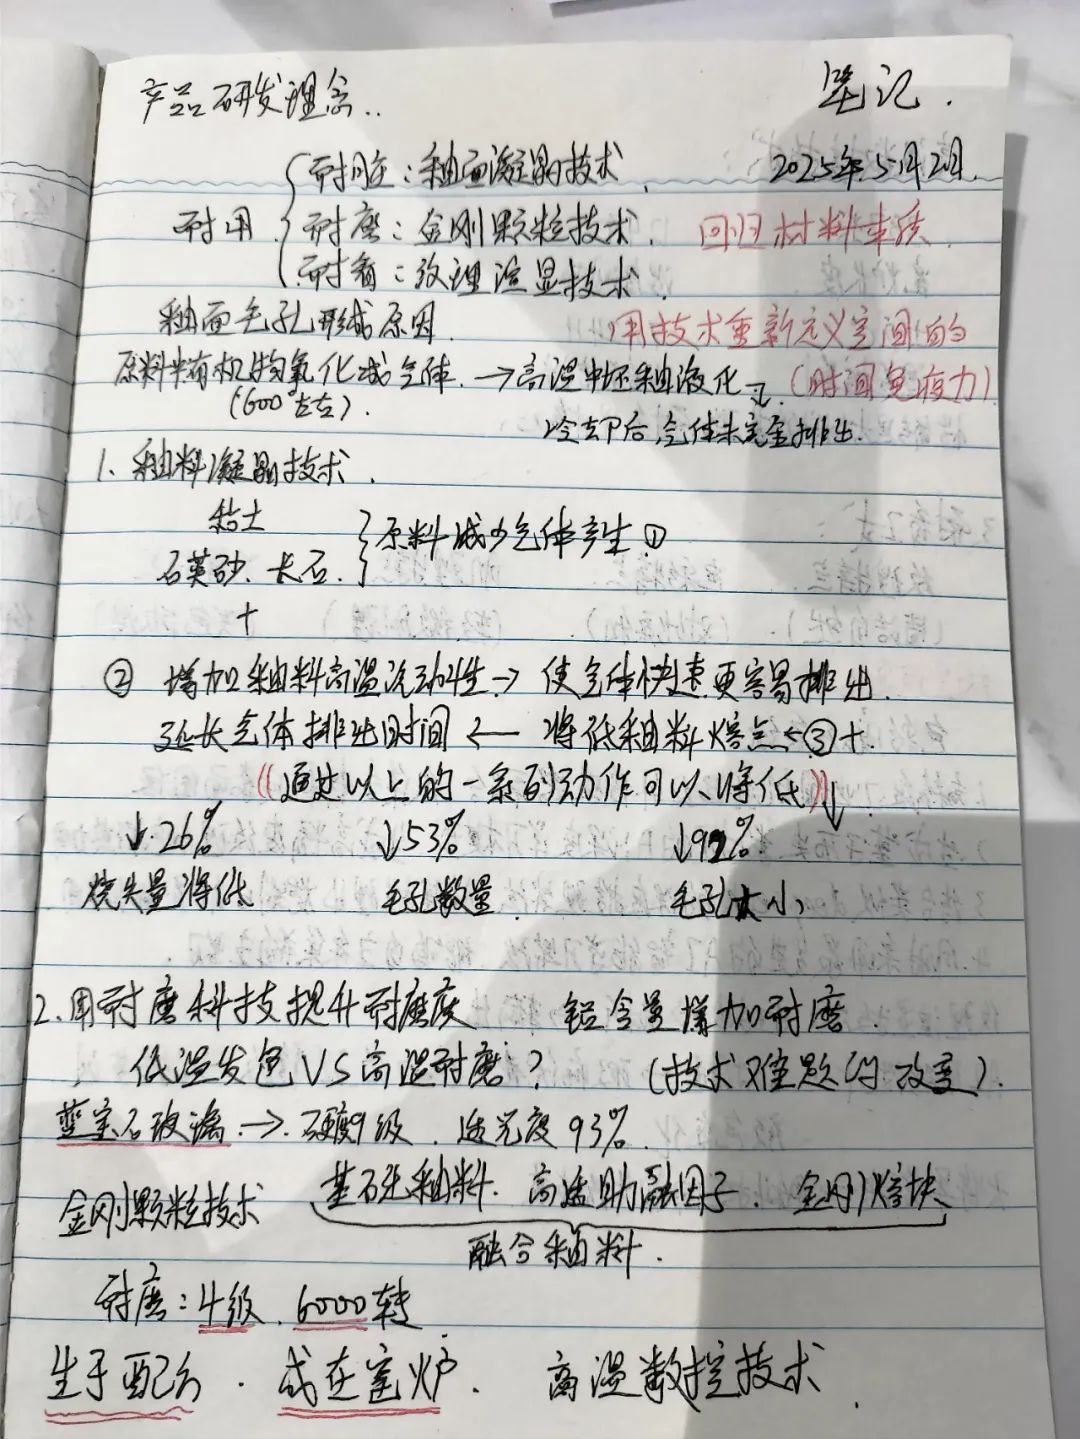 产品研发理念..
笔记.
2025年5月2日.
耐用
耐脏:釉面凝晶技术.
耐磨:金刚颗粒技术.
耐看:纹理渲显技术.
回归材料本质
用技术重新定义空间的
(时间免疫力)
釉面毛孔形成原因
原料中有机物氧化成气体.→高温中坯釉液化
(600°左右).
冷却后,气体未完全排出.
1.釉料凝晶技术.
粘土
石英砂.长石.
原料减少气体产生①
+
② 增加釉料高温流动性→使气体快速更容易排出.
延长气体排出时间←将低釉料熔点←③+.
((通过以上的一系列动作可以将低))↓
↓26% ↓53% ↓92%
烧失量将低 毛孔数量 毛孔大小
2.用耐磨科技提升耐磨度 铝含量增加耐磨.
低温发色VS高温耐磨? (技术难题的改变).
蓝宝石玻璃→硬9级.透光度93%.
金刚颗粒技术
基础釉料.高透助融因子.金刚熔块
融合釉料.
耐磨:4级.6000转
生于配方.成在窑炉.高温数控技术.